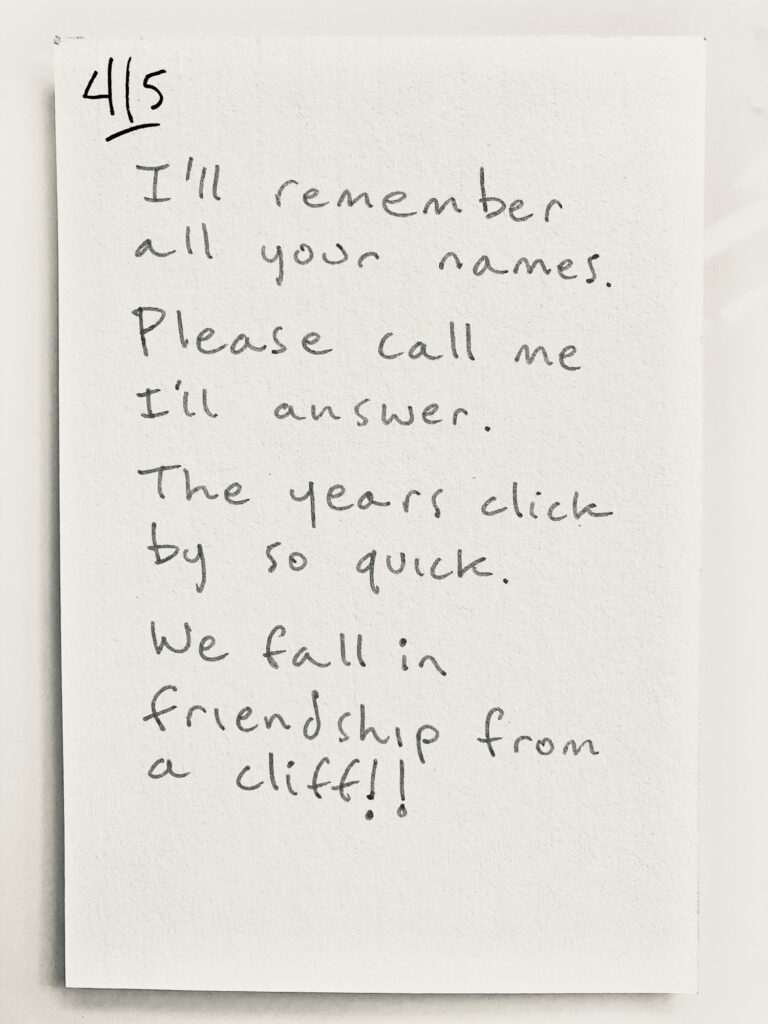 4/5
I'll remember
all your names.
Please call me
I'll answer.
The years click
by so quick.
We fall in
friendship from
a cliff!!